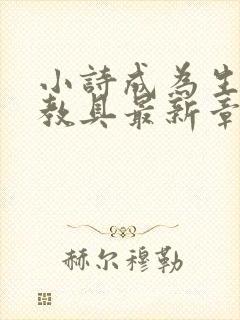 小詩成为生
教具最新章
赫尔穆勒